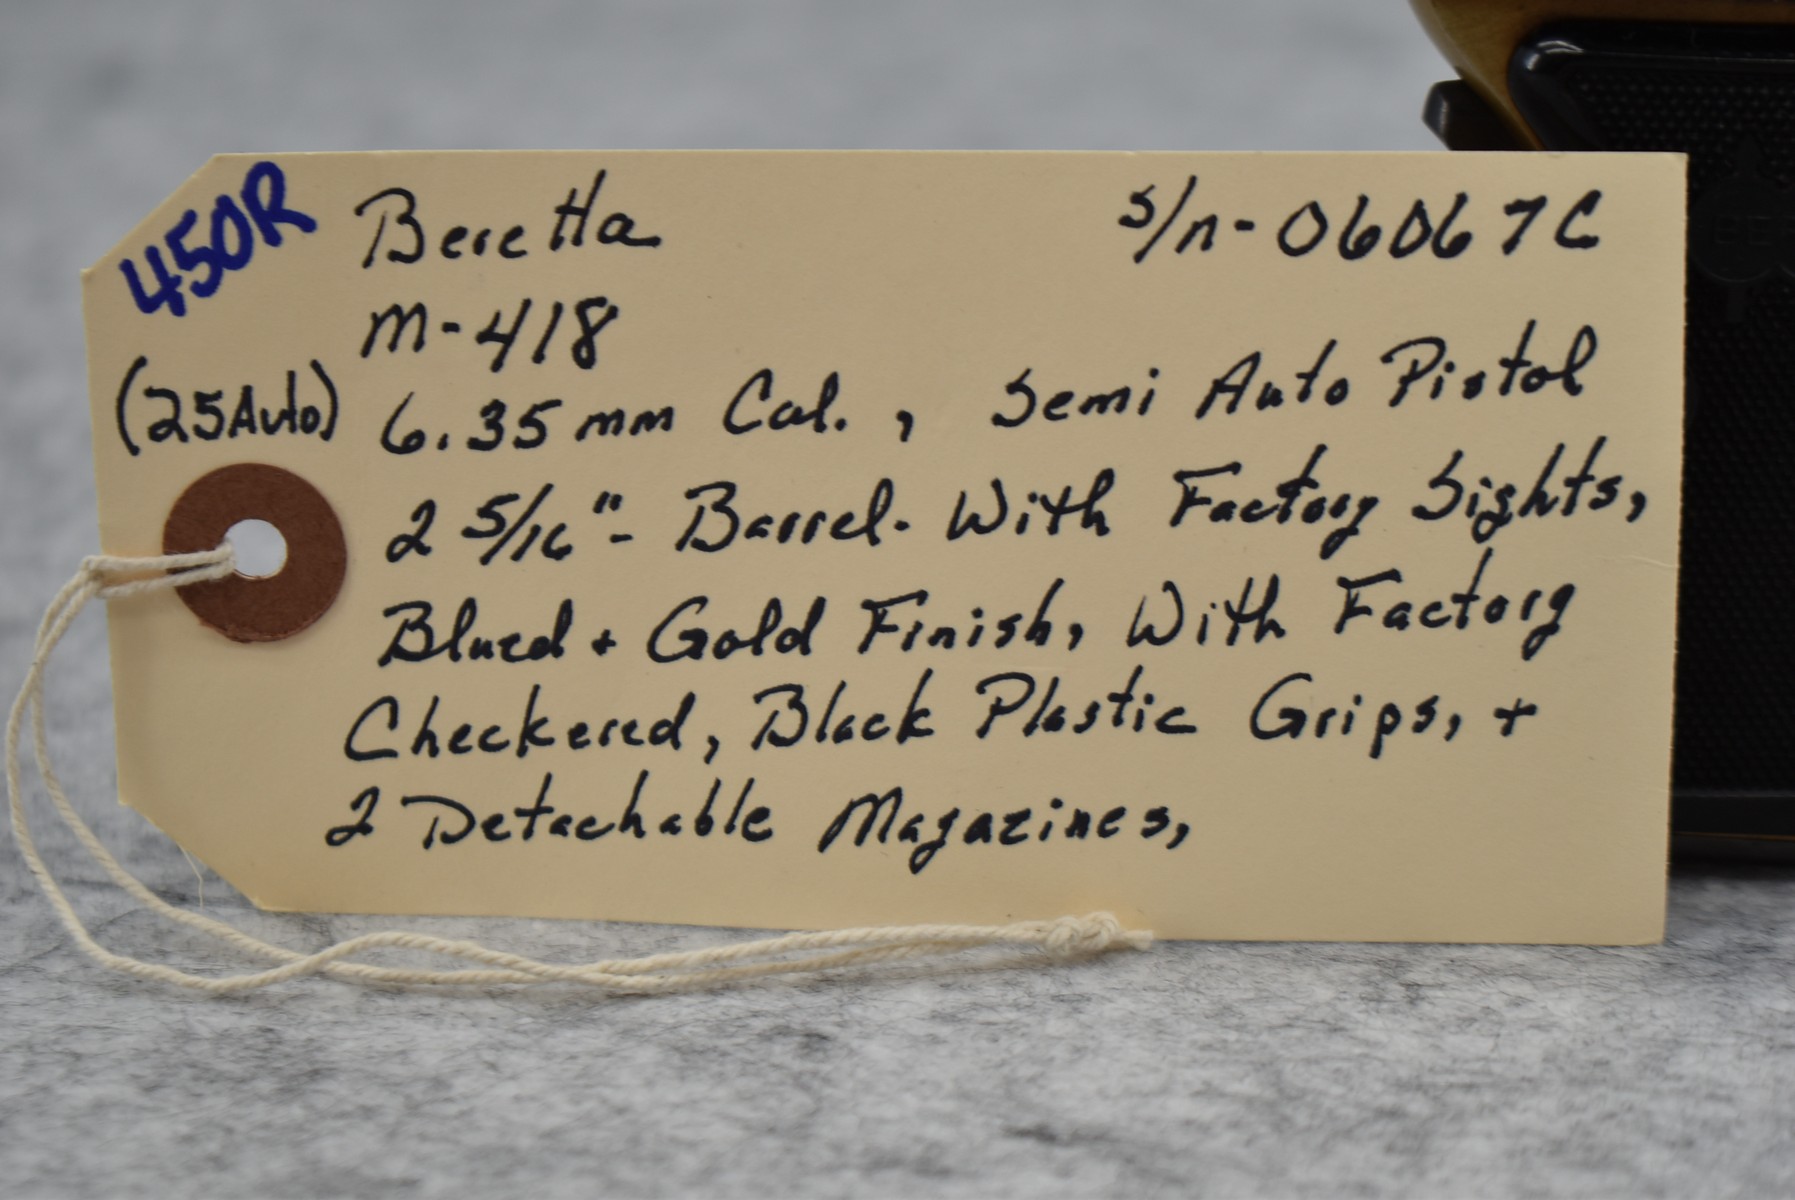 450R
Beretta s/n-06067C
M-418
(25Auto) 6.35mm Cal., Semi Auto Pistol
2 5/16"- Barrel. With Factory Sights,
Blued + Gold Finish, With Factory
Checkered, Black Plastic Grips, +
2 Detachable Magazines,